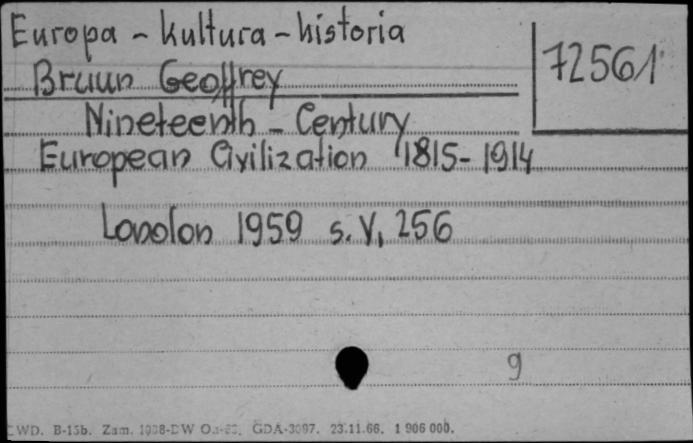 Europa - kultura - historia
72561
Bruun Geoffrey
Nineteenth - Century
European Civilization 1815-1914
London 1959 s. V, 256
9
WD. B-15b. Zam. GDA-3097. 23.11.66. 1 906 000.